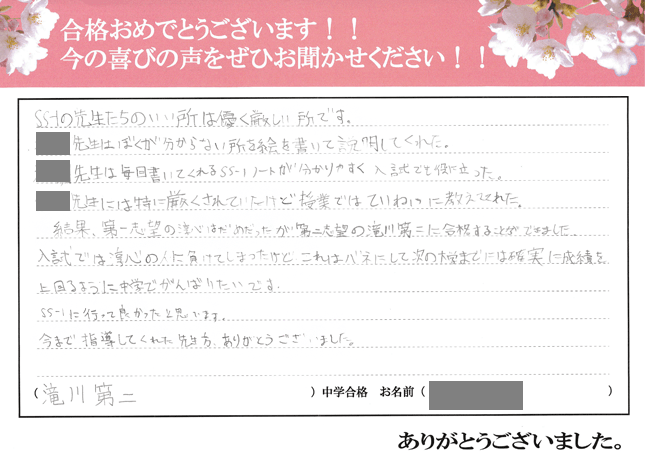 合格おめでとうございます！！
今の喜びの声をぜひお聞かせください！！
SS-1の先生たちのいい所は優く厳しい所です。
先生はぼくが分からない所を絵を書いて説明してくれた。
先生は毎回書いてくれるSS-1ノートが分かりやすく入試でも役に立った。
先生には特に厳くされていたけど授業ではていねいに教えてくれた。
結果、第一志望の淳心はだめだったが第二志望の滝川第二に合格することができました。
入試では淳心の人に負けてしまったけど、これはバネにして次の校までには確実に成績を
上回るように中学でがんばりたいです。
SS-1に行って良かったと思います。
今まで指導してくれた先生方、ありがとうございました。
（滝川第二）中学合格 お名前（ ）
ありがとうございました。